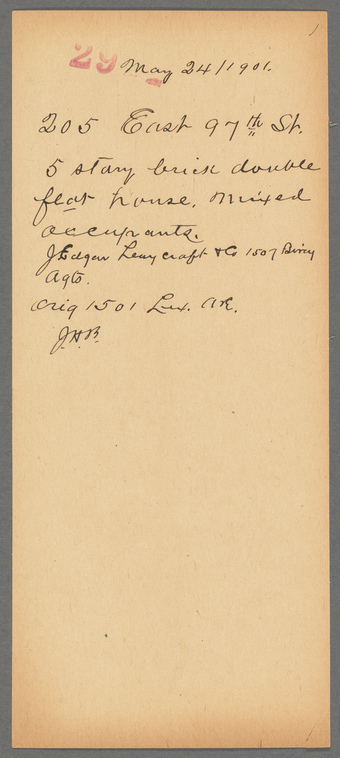 29
May 24/1901.
205 East 97th St.
5 story brick double
flat house. Mixed
occupants.
J Edgar Leaycraft & Co 1507 Bway
Agts.
Orig 1501 Lex. Ave.
J.H.B.